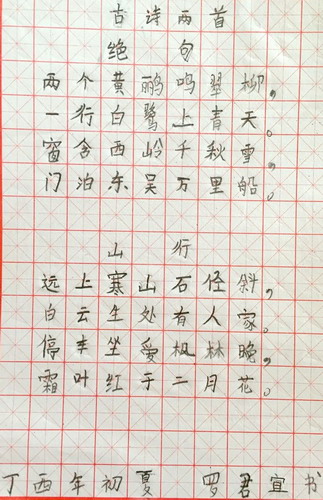 古诗两首
绝句
两个黄鹂鸣翠柳，
一行白鹭上青天。
窗含西岭千秋雪，
门泊东吴万里船。
山行
远上寒山石径斜，
白云生处有人家。
停车坐爱枫林晚，
霜叶红于二月花。
丁酉年初夏 罗君宜书